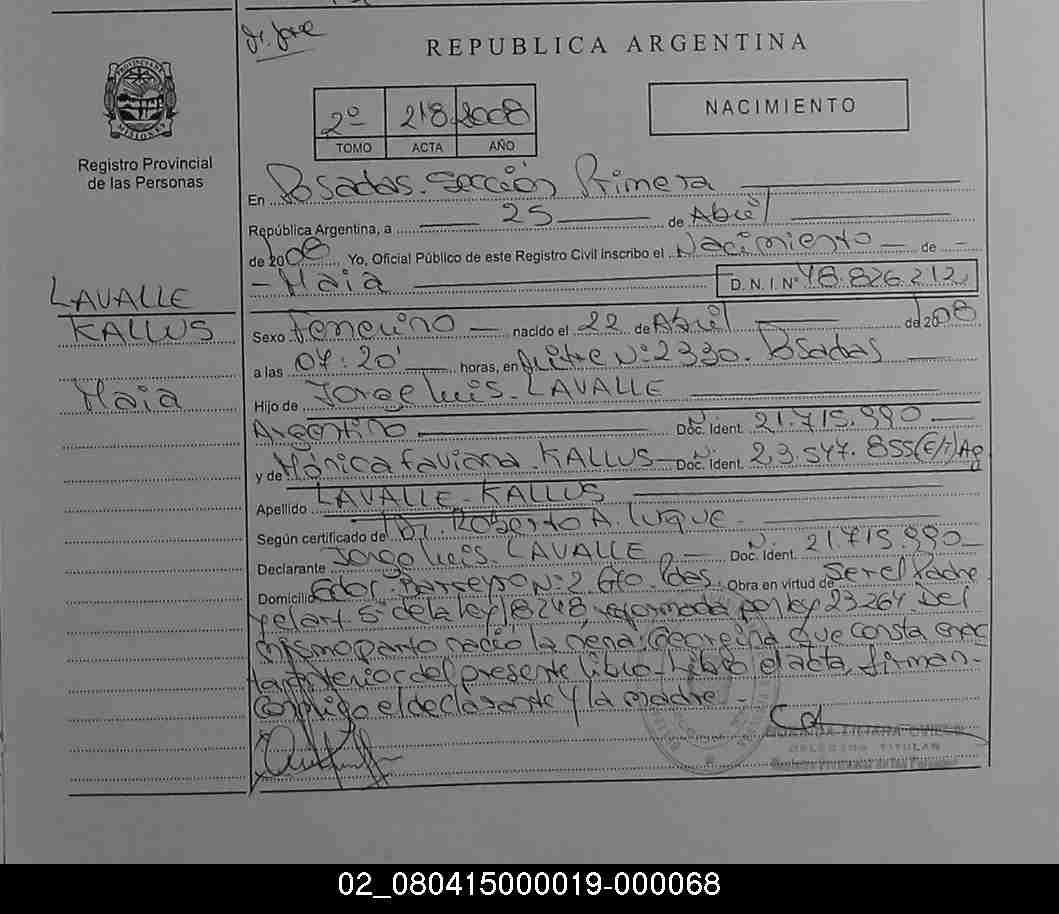 Dr. Jose
REPUBLICA ARGENTINA
NACIMIENTO
2º 218 2008
TOMO ACTA AÑO
PROVINCIA DE MISIONES
Registro Provincial
de las Personas
En Posadas. Sección Primera
República Argentina, a 25 de Abril
de 2008 Yo, Oficial Público de este Registro Civil inscribo el Nacimiento de
- Maia D.N.I. Nº 48.826.212
LAVALLE
KALLUS
Maia
Sexo Femenino nacido el 22 de Abril de 2008
a las 07:20' horas, en Mitre Nº 2330. Posadas
Hijo de Jorge Luis. LAVALLE
Argentino Doc. Ident. 21.715.990
y de Mónica Faviana. KALLUS Doc. Ident. 23.547.855 (E/T) Ag
Apellido LAVALLE - KALLUS
Según certificado de Dr. Roberto A. Luque.
Declarante Jorge Luis. LAVALLE Doc. Ident. 21715.990
Domicilio Barreyro Nº 2 Pdas. Obra en virtud de Ser el Padre
y el art 5º de la ley 18248, reformada por ley 23264. Del
mismo parto nació la nena: que consta en ac
ta anterior del presente libro. el acta, firman
conmigo el declarante y la madre -
LILIANA
TITULAR
Registro Provincial de las Personas
02_080415000019-000068